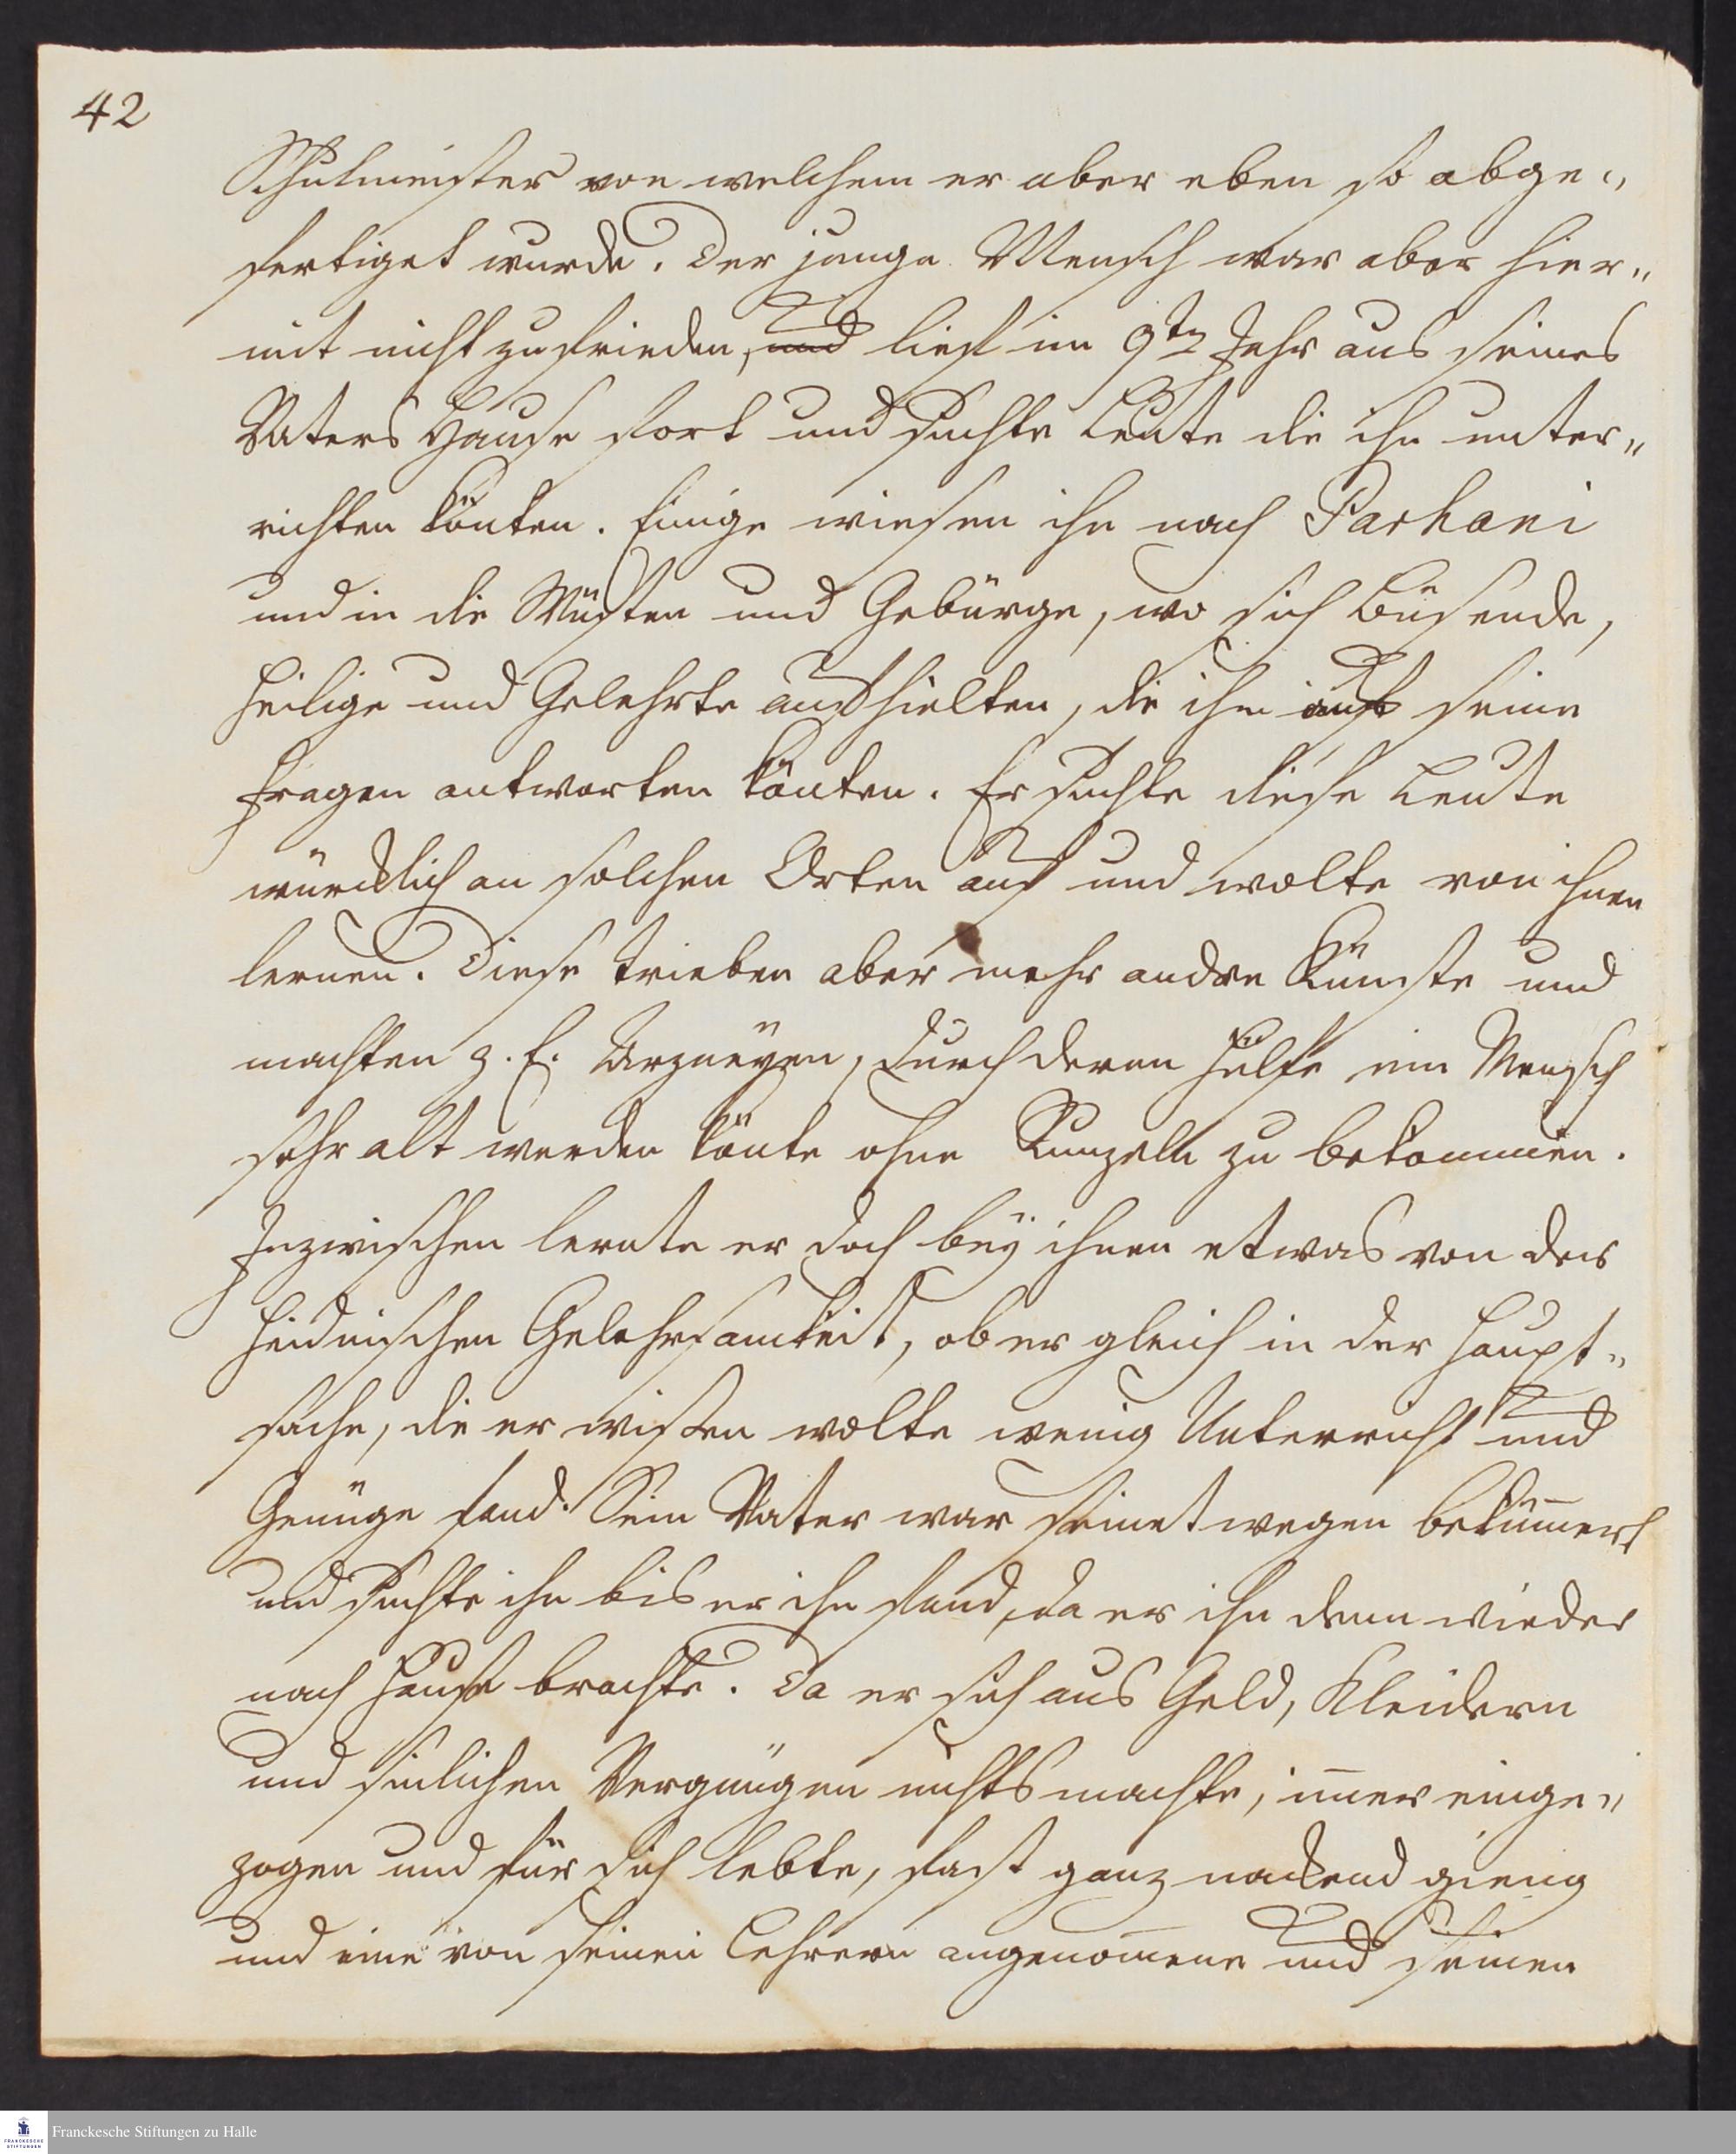 42
Schulmeister von welchem er aber eben so abge„
fertiget wurde. Der junge Mensch war aber hier„
mit nicht zufrieden, und lief im 9ten Jahr aus seines
Vaters Hause fort und suchte Leute die ihn unter„
richten könten. Einige wiesen ihn nach Parkani
und in die Wüsten und Gebürge, wo sich Büsende,
Heilige und Gelehrte aufhielten, die ihm auf seine
Fragen antworten könten. Er suchte diese Leute
würcklich an solchen Orten auf und wolte von ihnen
lernen. Diese trieben aber mehr andre Künste und
machten z. E. Arzneyen, durch deren Hülfe ein Mensch
sehr alt werden könte ohne Runzeln zu bekommen.
Inzwischen lernte er doch bey ihnen etwas von der
Heidnischen Gelehrsamkeit, ob er gleich in der Haupt„
sache, die er wissen wolte wenig Unterricht und
Genüge fand. Sein Vater war seinetwegen bekümmert
und suchte ihn bis er ihn fand, da er ihn denn wieder
nach Hause brachte. Da er sich aus Geld, Kleidern
und sinlichen Vergnügen nichts machte, im̄er einge„
zogen und für sich lebte, fast ganz nackend gieng
und eine von seinen Lehrern angenom̄ene und seinen
Franckesche Stiftungen zu Halle
FRANCKESCHE
STIFTUNGEN